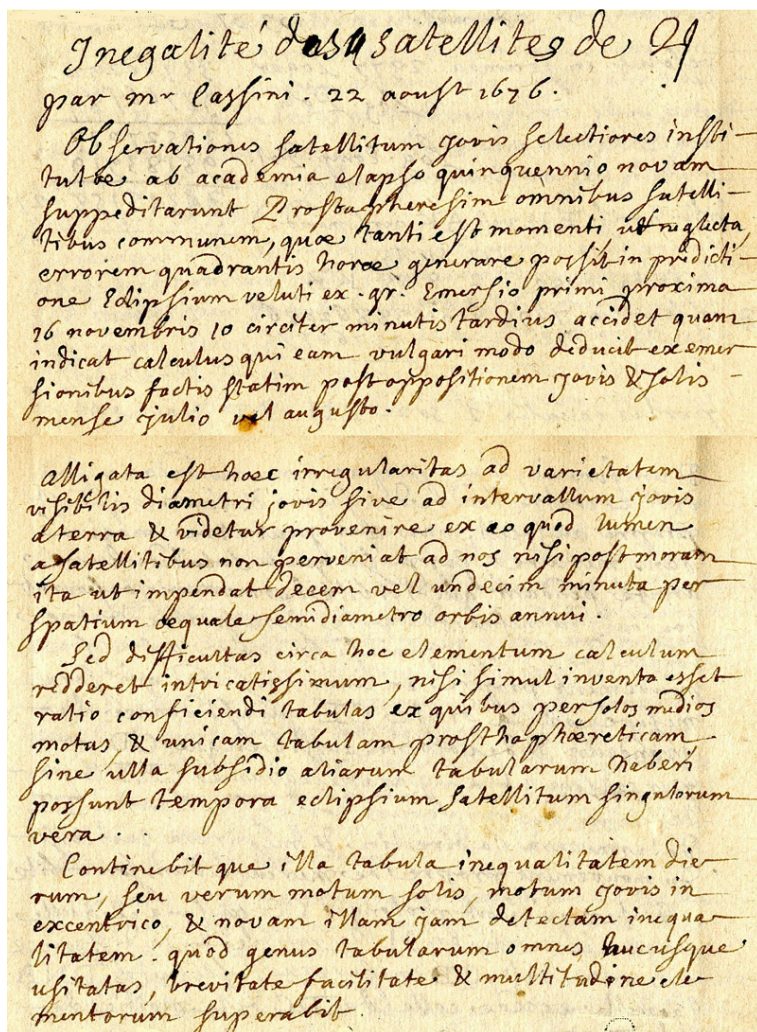 Inegalité des 4 satellites de ♃
par mr Cassini . 22 aoust 1676 .
Observationes satellitum jovis selectiores insti-
tutæ ab academia elapso quinquennio novam
suppeditarunt Prostapheresim omnibus satelli-
tibus communem, quæ tanti est momenti ut neglecta,
errorem quadrantis horæ generare possit in predicti-
one Eclipsium veluti ex . gr. Emersio primi proxima
16 novembris 10 circiter minutis tardius accidet quam
indicat calculus qui eam vulgari modo deducit ex emer
sionibus factis statim post oppositionem jovis & solis -
mense julio vel augusto .
Alligata est hæc irregularitas ad varietatem
visibilis diametri jovis sive ad intervallum jovis
a terra & videtur provenire ex eo quod lumen
a satellitibus non perveniat ad nos nisi post moram
ita ut impendat decem vel undecim minuta per
spatium æquale semidiametro orbis annui .
Sed difficultas circa hoc elementum calculum
redderet intricatissimum, nisi simul inventa esset
ratio conficiendi tabulas ex quibus per solos medios
motus, & unicam tabulam prosthaphæreticam
sine ulla subsidio aliarum tabularum haberi
possunt tempora eclipsium satellitum singulorum
vera . .
Continebit que illa tabula inequalitatem die-
rum, seu verum motum solis, motum jovis in
excentrico, & novam illam jam detectam inequa-
litatem . quod genus tabularum omnes hucusque
usitatas, brevitate facilitate & multitudine ele
mentorum superabit .